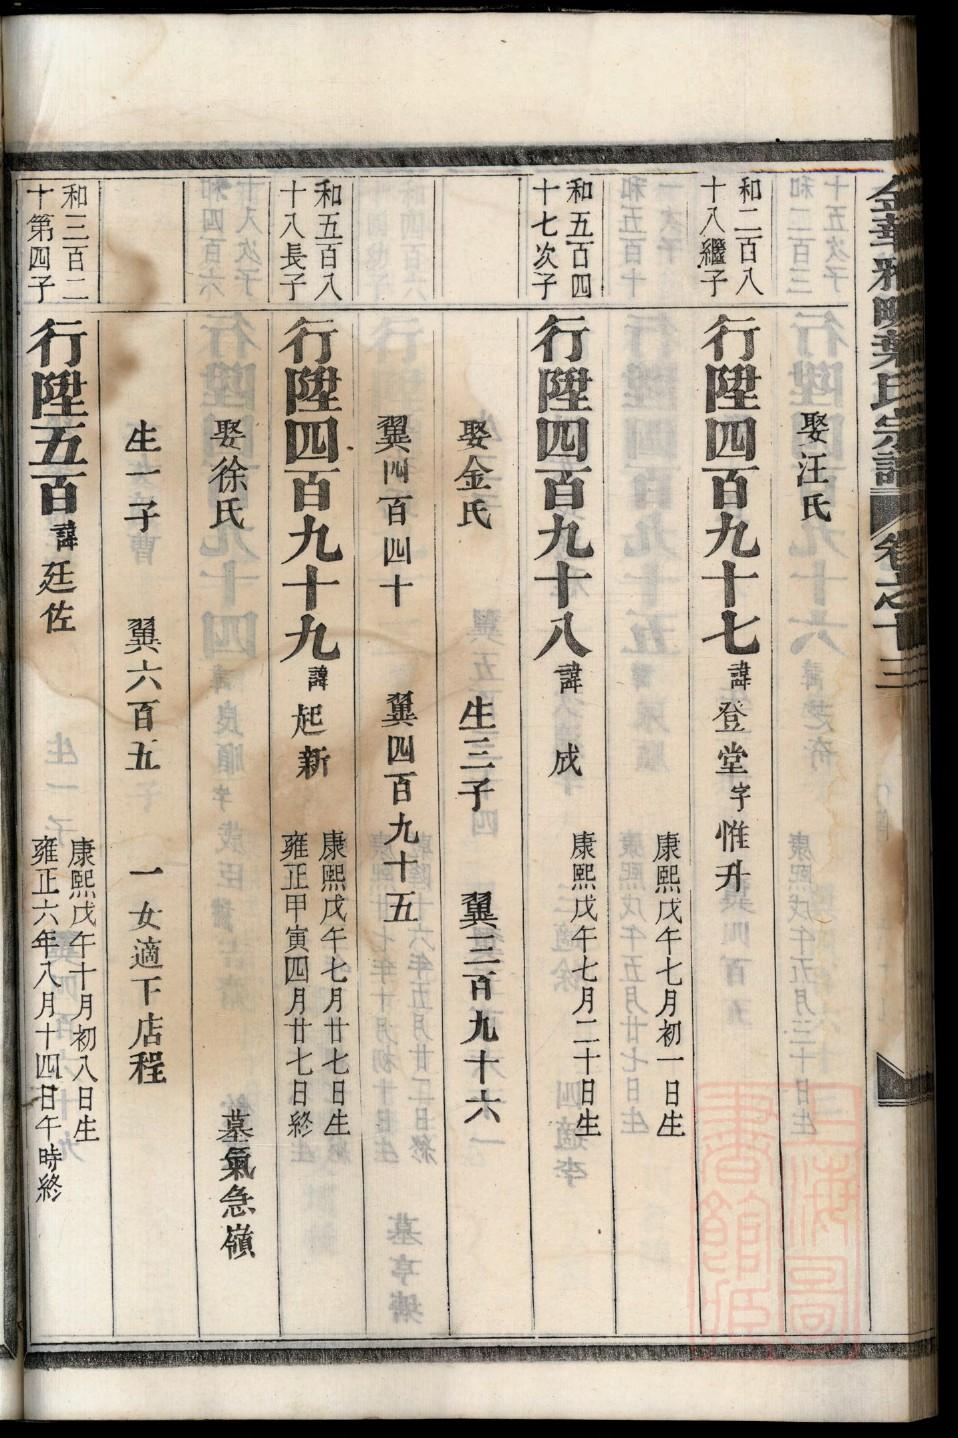 金華雅畈葉氏宗譜 卷之十三
娶汪氏
和二百八十八繼子
行陞四百九十七 諱登堂 字惟升 康熙戊午七月初一日生
和五百四十七次子
行陞四百九十八 諱成 康熙戊午七月二十日生
娶金氏 生三子 翼三百九十六
翼四百四十 翼四百九十五
和五百八十八長子
行陞四百九十九 諱起新 康熙戊午七月廿七日生
雍正甲寅四月廿七日終
娶徐氏 墓氣急嶺
生一子 翼六百五 一女適下店程
和三百二十第四子
行陞五百 諱廷佐 康熙戊午十月初八日生
雍正六年八月十四日午時終